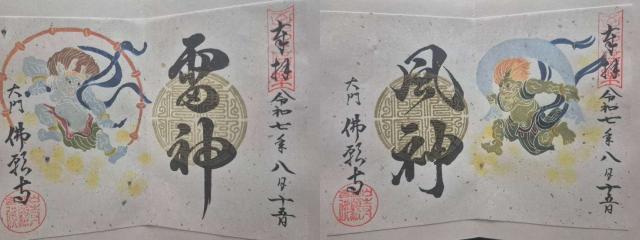 奉拝
令和七年八月十五日
雷神
大門 佛願寺
奉拝
令和七年八月十五日
風神
大門 佛願寺